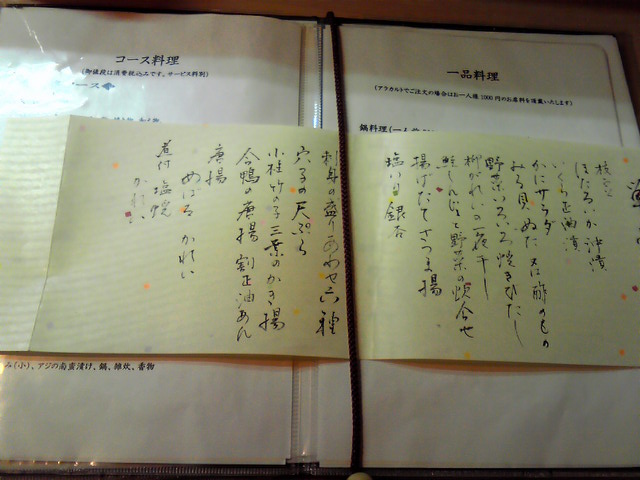 コース料理
(御値段は消費税込みです。サービス料別)
コース
一品料理
(アラカルトでご注文の場合はお一人様1000円のお席料を頂戴いたします)
鍋料理(一人前
枝豆
ほたるいか沖漬
いくら正油漬
かにサラダ
みる貝 ぬた 又は酢のもの
野菜いろいろ焼きびたし
柳がれいの一夜干し
鮭しんじょと野菜の炊合せ
揚げたて さつま揚
塩いり銀杏
刺身の盛りあわせ六種
穴子の天ぷら
小柱 竹の子 三葉のかき揚
合鴨の唐揚 割正油あん
唐揚
めばる かれい
煮付 塩焼
かれい
み(小)、アジの南蛮漬け、鍋、雑炊、香物